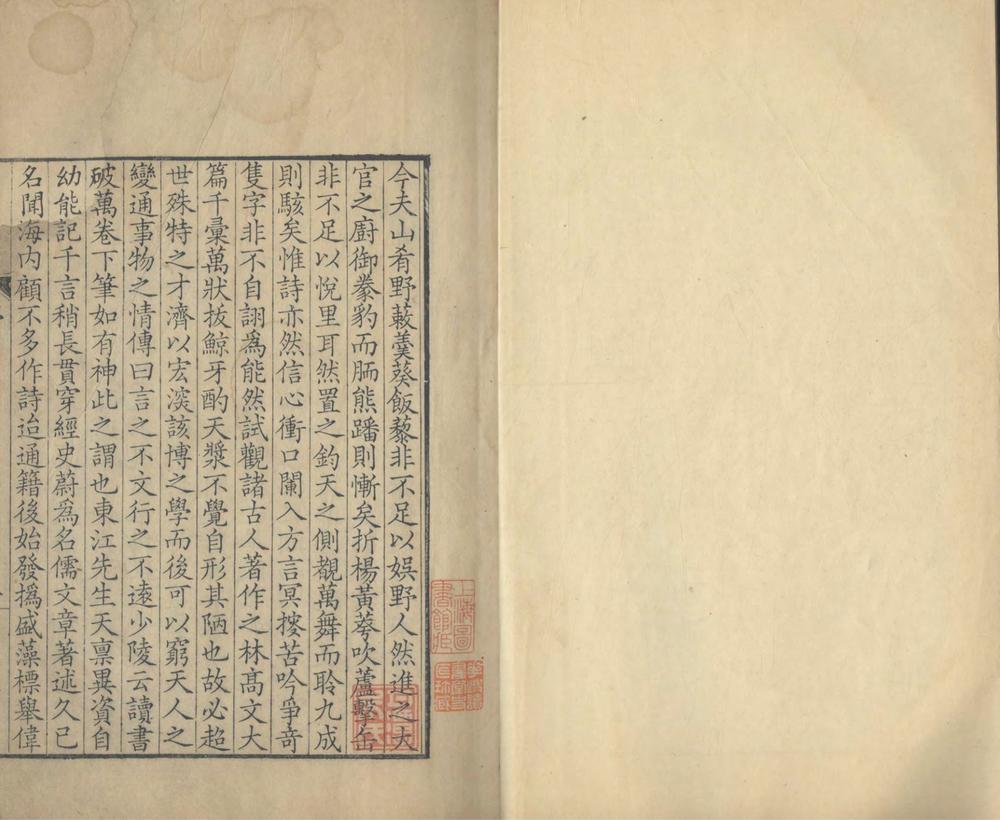 今夫山肴野蔌羮葵飯藜非不足以娱野人然進之大
官之廚御豢豹而胹熊蹯則慚矣折楊黃荂吹蘆擊缶
非不足以悅里耳然置之鈞天之側觀萬舞而聆九成
則駭矣惟詩亦然信心衝口闌入方言冥搜苦吟爭竒
隻字非不自詡爲能然試觀諸古人著作之林髙文大
篇千彚萬狀拔鯨牙酌天漿不覺自形其陋也故必超
世殊特之才濟以宏深該博之學而後可以窮天人之
變通事物之情傳曰言之不文行之不逺少陵云讀書
破萬卷下筆如有神此之謂也東江先生天禀異資自
幼能記千言稍長貫穿經史蔚爲名儒文章著述久已
名聞海内顧不多作詩迨通籍後始發撝盛藻標舉偉
上海圖
書館藏